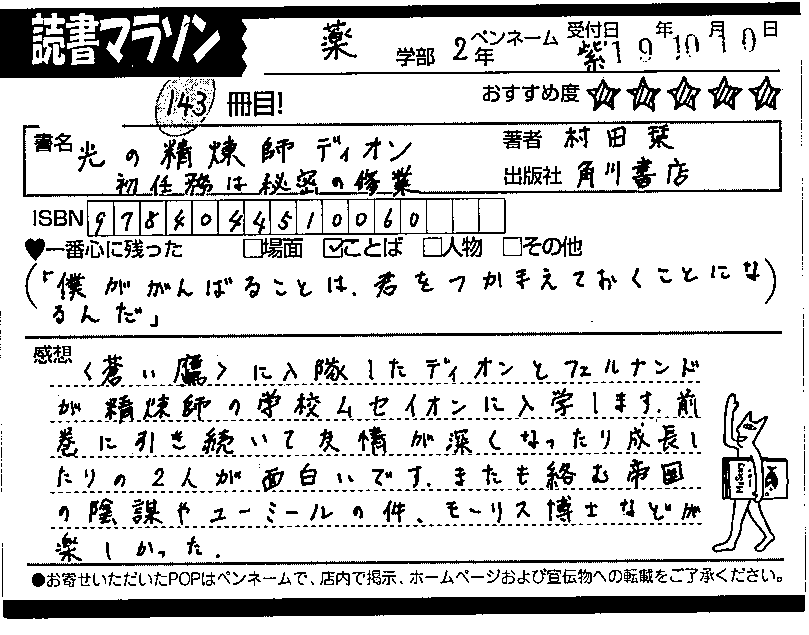 読書マラソン
薬 学部 2年 ペンネーム 紫 受付日 19年10月10日
143 冊目! おすすめ度 ☆☆☆☆☆
書名 光の精煉師ディオン
初任務は秘密の修業
著者 村田栞
出版社 角川書店
ISBN 9784044510060
♥一番心に残った □場面 ☑ことば □人物 □その他
(「僕ががんばることは、君をつかまえておくことにな
るんだ」)
感想
〈蒼い鷹〉に入隊したディオンとフェルナンド
が精煉師の学校ムセイオンに入学します。前
巻に引き続いて友情が深くなったり成長し
たりの2人が面白いです。またも絡む帝国
の陰謀やユーミールの件、モーリス博士などが
楽しかった。
●お寄せいただいたPOPはペンネームで、店内で掲示、ホームページおよび宣伝物への転載をご了承ください。